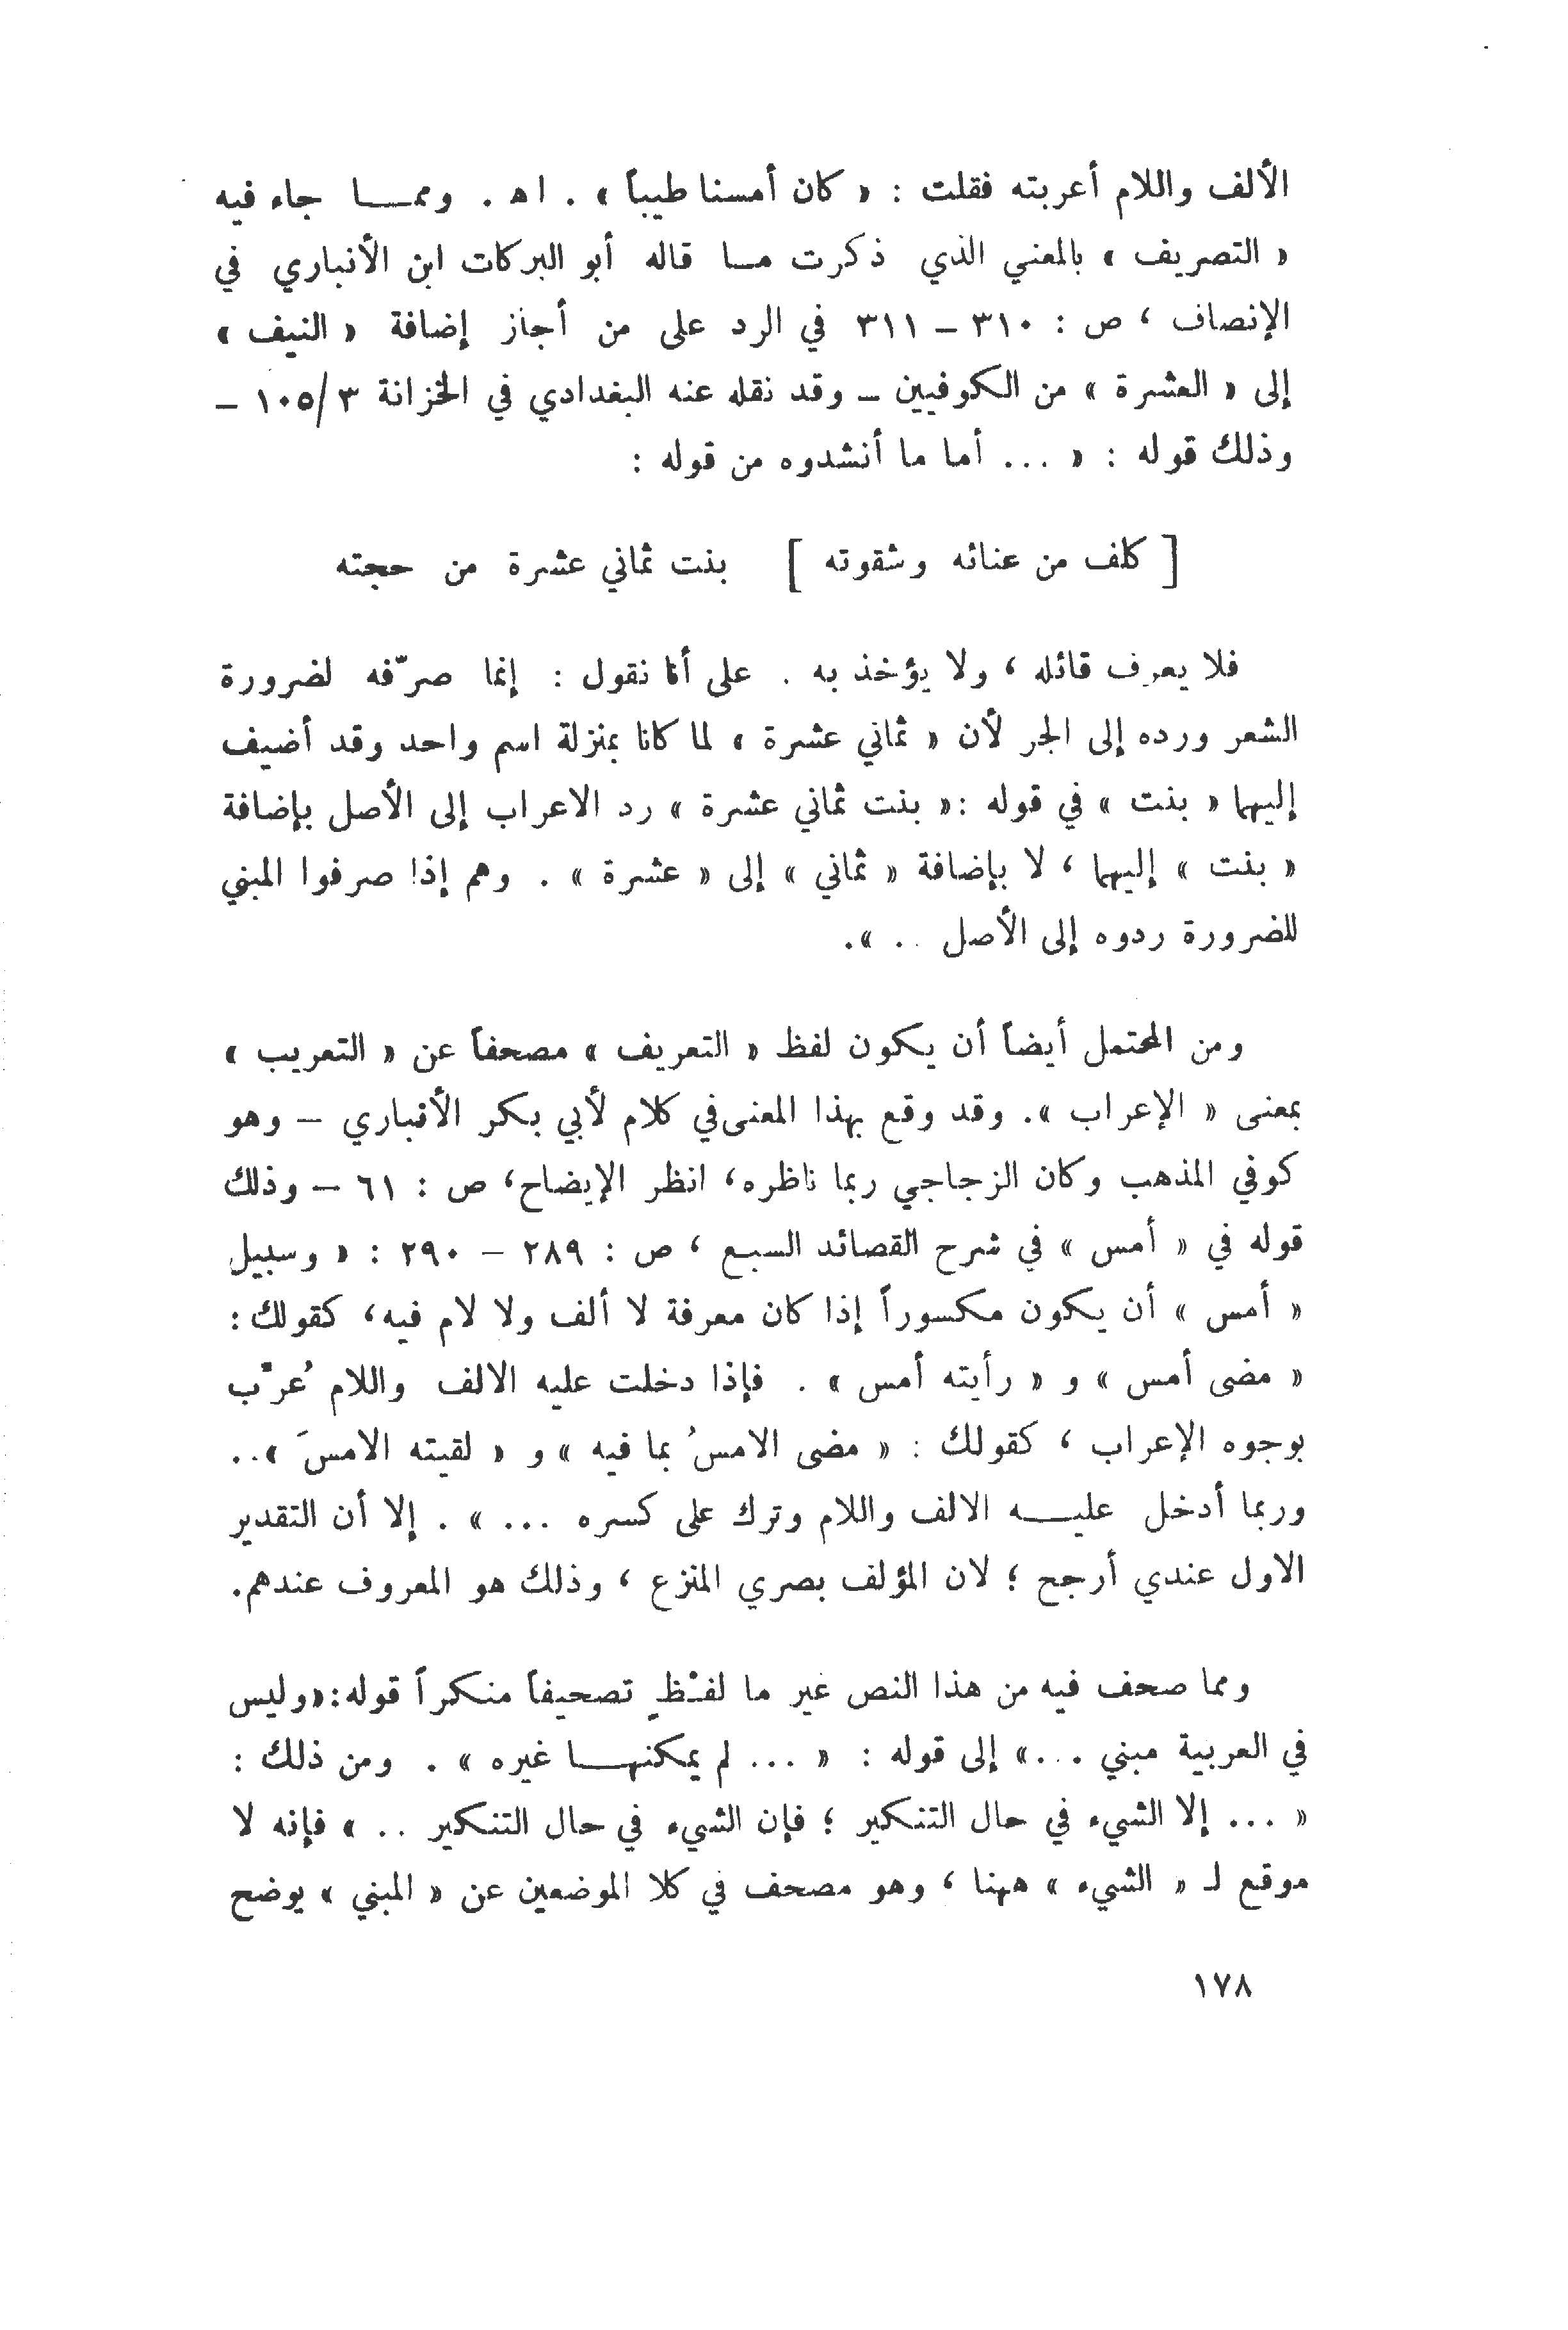 الألف واللام أعربته فقلت : « كان أمسنا طيباً » . اه . وممـا جاء فيه
« التصريف » بالمعني الذي ذكرت مـا قاله أبو البركات ابن الأنباري في
الإنصاف ، ص : ٣١٠ – ٣١١ في الرد على من أجاز إضافة « النيف »
إلى « العشرة » من الكوفيين – وقد نقله عنه البغدادي في الخزانة ٣/١٠٥ –
وذلك قوله : « ... أما ما أنشدوه من قوله :
[ كلف من عنائه وشقوته ] بنت ثماني عشرة من حجته
فلا يعرف قائله ، ولا يؤخذ به . على أنا نقول : إنما صرّفه لضرورة
الشعر ورده إلى الجر لأن « ثماني عشرة » لما كانا بمنزلة اسم واحد وقد أضيف
إليهما « بنت » في قوله :« بنت ثماني عشرة » رد الاعراب إلى الأصل بإضافة
« بنت » إليهما ، لا بإضافة « ثماني » إلى « عشرة » . وهم إذا صرفوا المبني
للضرورة ردوه إلى الأصل .. ».
ومن المحتمل أيضاً أن يكون لفظ « التعريف » مصحفاً عن « التعريب »
بمعنى « الإعراب ». وقد وقع بهذا المعنى في كلام لأبي بكر الأنباري – وهو
كوفي المذهب وكان الزجاجي ربما ناظره، انظر الإيضاح، ص : ٦١ – وذلك
قوله في « أمس » في شرح القصائد السبع ، ص : ٢٨٩ – ٢٩٠ : « وسبيل
« أمس » أن يكون مكسوراً إذا كان معرفة لا ألف ولا لام فيه، كقولك :
« مضى أمس » و « رأيته أمس » . فإذا دخلت عليه الالف واللام عُرّب
بوجوه الإعراب ، كقولك : « مضى الامسُ بما فيه » و « لقيته الامسَ »..
وربما أدخل عليـه الالف واللام وترك على كسره ... » . إلا أن التقدير
الاول عندي أرجح ؛ لان المؤلف بصري المنزع ، وذلك هو المعروف عندهم.
ومما صحف فيه من هذا النص غير ما لفْظٍ تصحيفاً منكراً قوله:«وليس
في العربية مبني ...» إلى قوله : « ... لم يمكنهـا غيره » . ومن ذلك :
« ... إلا الشيء في حال التنكير ؛ فإن الشيء في حال التنكير .. » فإنه لا
موقع لـ « الشيء » ههنا ، وهو مصحف في كلا الموضعين عن « المبني » يوضح
١٧٨